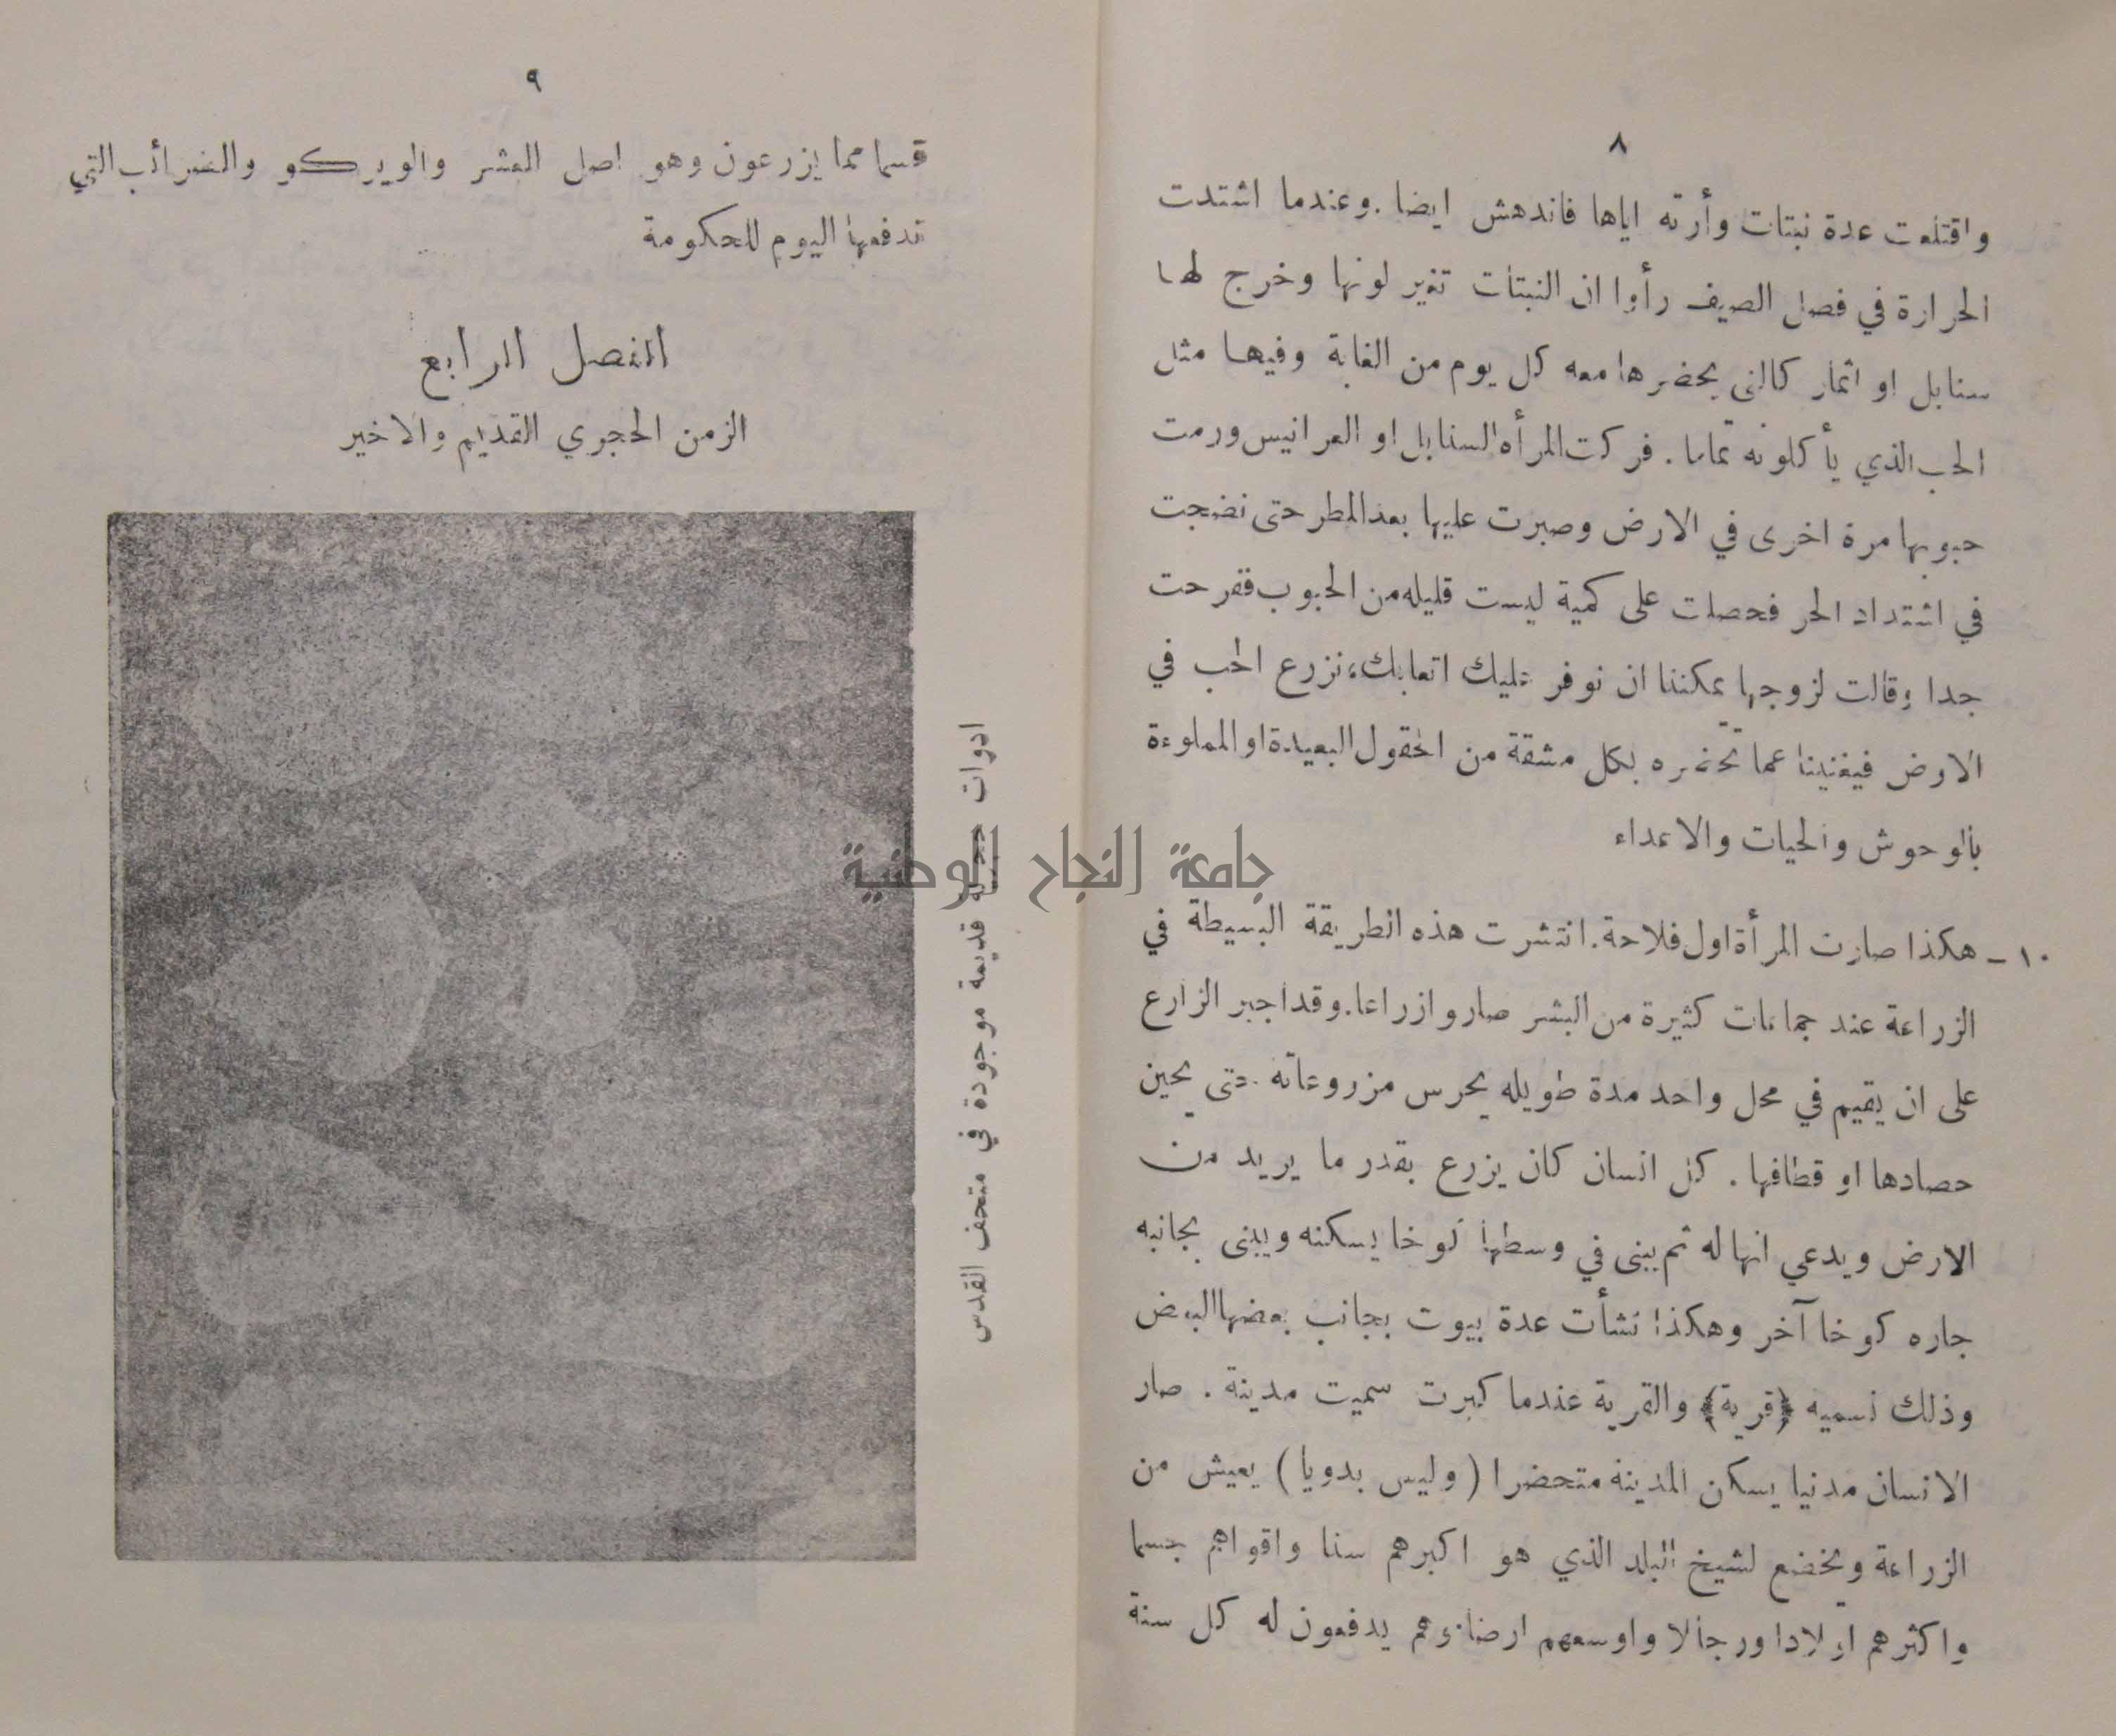 ٨
واقتلعت عدة نبتات وأرته اياها فاندهش ايضا . وعندما اشتدت
الحرارة في فصل الصيف رأوا ان النبتات تغير لونها وخرج لها
سنابل او اثمار كالتي يحضرها معه كل يوم من الغابة وفيها مثل
الحب الذي يأكلونه تماما . فركت المرأه السنابل او العرانيس ورمت
حبوبها مرة اخرى في الارض وصبرت عليها بعد المطر حتى نضجت
في اشتداد الحر فحصلت على كمية ليست قليله من الحبوب ففرحت
جدا وقالت لزوجها يمكننا ان نوفر عليك اتعابك، نزرع الحب في
الارض فيغنينا عما تحضره بكل مشقة من الحقول البعيدة او المملوءة
بالوحوش والحيات والاعداء
١٠ – هكذا صارت المرأة اول فلاحة . انتشرت هذه الطريقة البسيطة في
الزراعة عند جماعات كثيرة من البشر صاروا زراعا . وقد اجبر الزارع
على ان يقيم في محل واحد مدة طويله يحرس مزروعاته حتى يحين
حصادها او قطافها . كل انسان كان يزرع بقدر ما يريد من
الارض ويدعي انها له ثم يبني في وسطها كوخا يسكنه ويبني بجانبه
جاره كوخا آخر وهكذا نشأت عدة بيوت بجانب بعضها البعض
وذلك نسميه ﴿قرية﴾ والقرية عندما كبرت سميت مدينة . صار
الانسان مدنيا يسكن المدينة متحضرا ( وليس بدويا ) يعيش من
الزراعة ويخضع لشيخ البلد الذي هو اكبرهم سنا واقواهم جسما
واكثرهم اولادا ورجالا واوسعهم ارضا وهم يدفعون له كل سنة
٩
قسما مما يزرعون وهو اصل العشر والويركو والضرائب التي
تدفعها اليوم للحكومة
الفصل الرابع
الزمن الحجري القديم والاخير
ادوات حجرية قديمة موجودة في متحف القدس
جامعة النجاح الوطنية